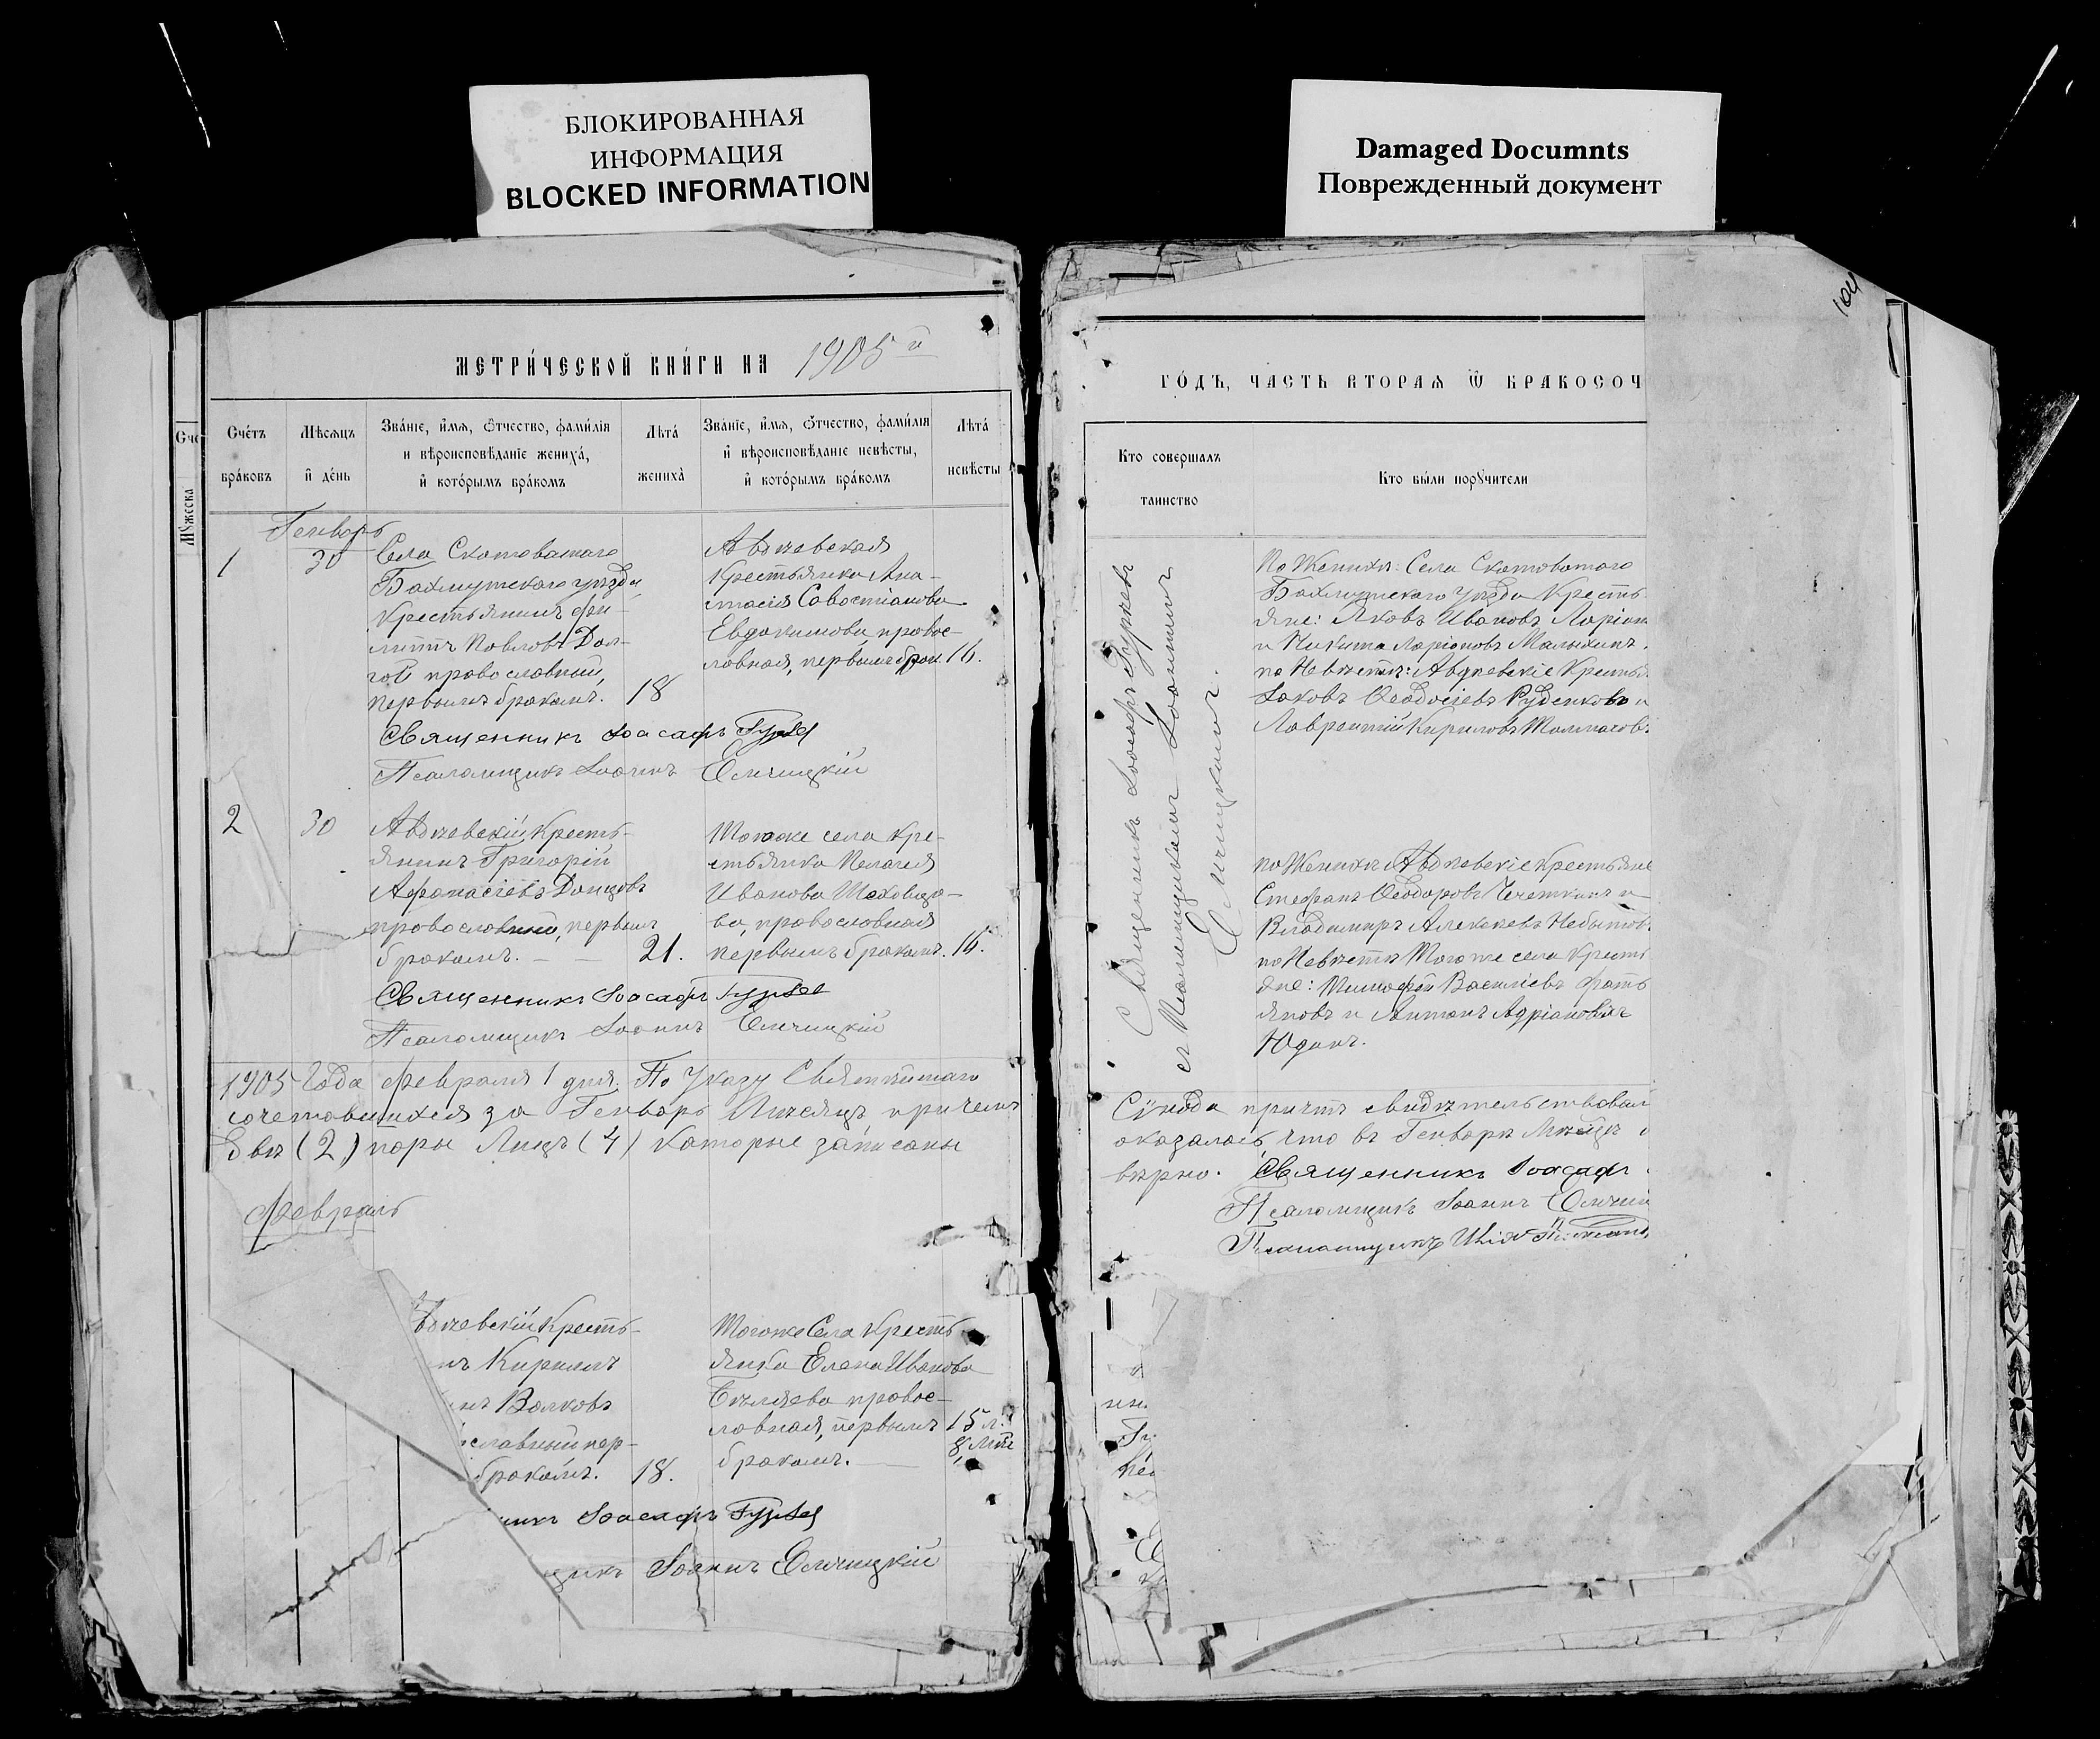 БЛОКИРОВАННАЯ
ИНФОРМАЦИЯ
BLOCKED INFORMATION
Damaged Documnts
Поврежденный документ
104
МЕТРИ́ЧЕСКОЙ КНИ́ГИ НА 1905 й
Сче́тъ
бра́ковъ
Мѣсѧцъ
и́ де́нь
Зва́нїе, и́мѧ, ѻ́тчество, фами́лїѧ
и вѣроисповѣ́данїе жениха́,
и́ кото́рымъ бра́комъ
Лѣта́
жениха̀
Зва́нїе, и́мѧ, ѻ́тчество, фами́лїѧ
и́ вѣроисповѣ́данїе невѣ́сты,
и́ кото́рымъ бра́комъ
Лѣта́
невѣ́сты
Генварь
1
30
Села Скотоватаго
Бахмутскаго уѣзда,
крестьянинъ Фи-
липпъ Павловъ Дол-
гой православный,
первымъ бракомъ.
18
Авдѣевская
крестьянка Ана-
стасія Савостіанова
Евдокимова правос-
лавная, первымъ брак.
16.
Священникъ Іоасафъ Гурьев
Псаломщикъ Іоаннъ Елчицкій
2
30
Авдѣевскій кресть-
янинъ Григорій
Афанасіевъ Донцовъ
православный, первымъ
бракомъ.
21.
Тогоже села кре-
стьянка Пелагея
Иванова Шаховцо-
ва, православная
первымъ бракомъ.
16.
Священникъ Іоасафъ Гурьев
Псаломщикъ Іоаннъ Елчицкій
1905 года февраля 1 дня. По Указу Святѣйшаго
сочетавшихся за Генварь Мѣсяцъ причемъ
двѣ (2) пары Лицъ (4) которые записаны
Февраль
вдѣевскій кресть-
нъ Кириллъ
нъ Волковъ
славный пер-
бракомъ.
18.
Тогоже села кресть-
янка Елена Иванова
Бѣляева правос-
лавная, первымъ
бракомъ.
15 л.
8 мѣс
никъ Іоасафъ Гурьев
щикъ Іоаннъ Елчицкій
ГО́ДЪ, ЧАСТЬ ВТОРАѦ Ѿ БРАКОСОЧ
Кто совершалъ
таинство
Кто бы́ли порꙋчители
Священникъ Іоасафъ Гурьевъ
съ Псаломщикомъ Іоанномъ
Елчицкимъ.
По Женихѣ: Села Скотоватаго
Бахмутскаго уѣзда Кресть-
яне: Яковъ Ивановъ Ларіон
и Никита Ларіоновъ Малыхинъ.
по Невѣстѣ: Авдѣевскіе Крестья
Іаковъ Ѳеодосіевъ Руденково и
Лаврентій Кириловъ Толмачов
по Женихѣ Авдѣевскіе Крестьяне
Стефанъ Ѳеодоровъ Чечеткинъ и
Владимиръ Алексѣевъ Небытов
по Невѣстѣ Того же села Кресть
яне: Тимофей Васіліевъ Фать-
яновъ и Антонъ Адріановичъ
Юдинъ.
Сѵнода причтъ свидѣтельствовал
оказалось что въ Генварѣ Мѣсяцѣ
вѣрно. Священникъ Іоасафъ
Псаломщикъ Іоаннъ Елчиц
Псаломщикъ